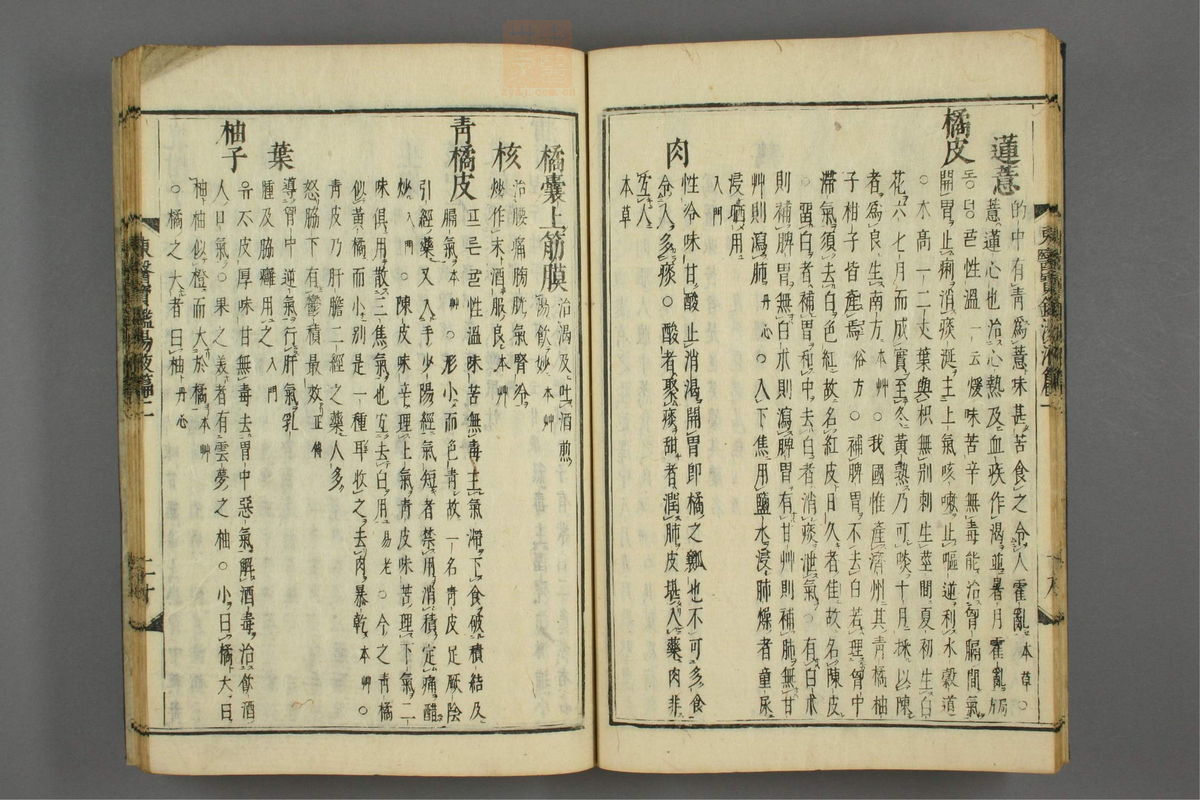 蓮薏
的中有靑爲薏味甚苦食之令人霍亂本草○
薏蓮心也治心熱及血疾作渴並暑月霍亂局方
橘皮
동뎡귤性溫一云煖味苦辛無毒能治胷膈間氣
開胃止痢消痰涎主上氣咳嗽止嘔逆利水穀道
○木高一二丈葉與枳無別刺生莖間夏初生白
花六七月而成實至冬黃熟乃可啖十月採以陳
者爲良生南方本艸○我國惟產濟州其靑橘柚
子柑子皆產焉俗方○補脾胃不去白若理胷中
滯氣須去白色紅故名紅皮日久者佳故名陳皮
○留白者補胃和中去白者消痰泄氣○有白朮
則補脾胃無白朮則瀉脾胃有甘艸則補肺無甘
艸則瀉肺丹心○入下焦用鹽水浸肺燥者童尿
浸晒用入門
肉
性冷味甘酸止消渴開胃卽橘之瓤也不可多食
令人多痰○酸者聚痰甜者潤肺皮堪入藥肉非
宜人本草
橘囊上筋膜
治渴及吐酒煎
湯飲妙本艸
核
治腰痛膀胱氣腎冷
炒作末酒服良本艸
靑橘皮
프른귤性溫味苦無毒主氣滯下食破積結及
膈氣本艸○形小而色靑故一名靑皮足厥陰
引經藥又入手少陽經氣短者禁用消積定痛醋
炒入門○陳皮味辛理上氣靑皮味苦理下氣二
味俱用散三焦氣也宜去白用易老○今之靑橘
似黃橘而小別是一種耳收之去肉暴乾本艸○
靑皮乃肝膽二經之藥人多
怒脇下有鬱積最效正傳
葉
導胷中逆氣行肝氣乳
腫及脇癰用之入門
柚子
유ᄌᆞ皮厚味甘無毒去胃中惡氣解酒毒治飮酒
人口氣○果之美者有雲夢之柚○小曰橘大曰
柚柚似橙而大於橘本艸
○橘之大者曰柚丹心
東醫寶鑑湯液篇二